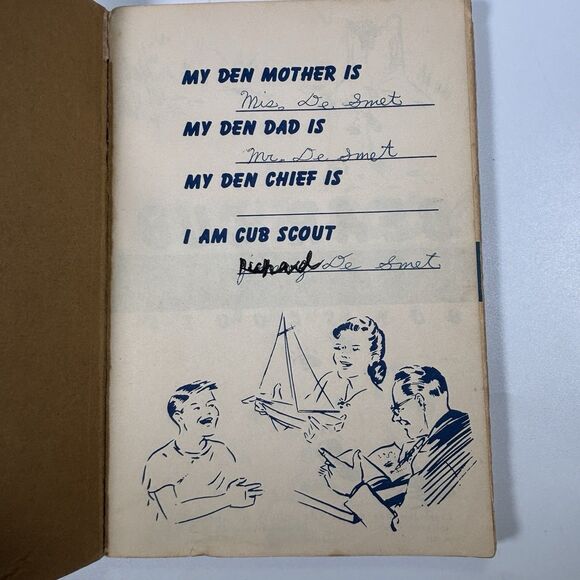 MY DEN MOTHER IS
Mis. De Smet
MY DEN DAD IS
Mr. De Smet
MY DEN CHIEF IS
I AM CUB SCOUT
Richard De Smet